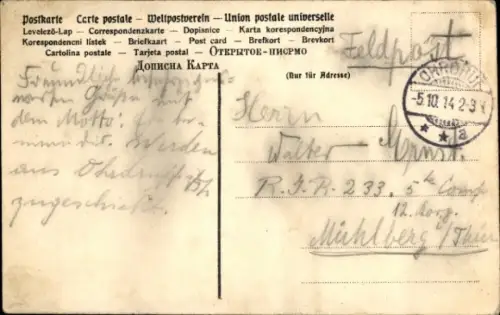 Postkarte — Carte postale — Weltpostverein — Union postale universelle
Levelező-Lap — Correspondenzkarte — Dopisnice — Karta korespondencyjna
Korespondenční lístek — Briefkaart — Post card — Brefkort — Brevkort
Cartolina postale — Tarjeta postal — Открытое-письмо
Дописна Карта
(Nur für Adresse)
Feldpost
OHRDRUF
-5.10.14 2-3 N
* * a
Freundliche
Grüße mit
dem Motto:
Werden
aus Ohrdruf
zugeschickt.
Herrn
Walter Ernst.
R.I.R. 233. 5te Comp
12. Korp.
Mühlberg i/Thür